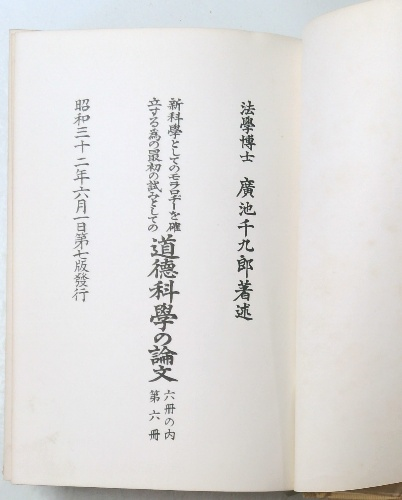 法學博士 廣池千九郎著述
新科學としてのモラロヂーを確
立する為の最初の試みとしての
道德科學の論文
六冊の内
第六冊
昭和三十二年六月一日第七版發行